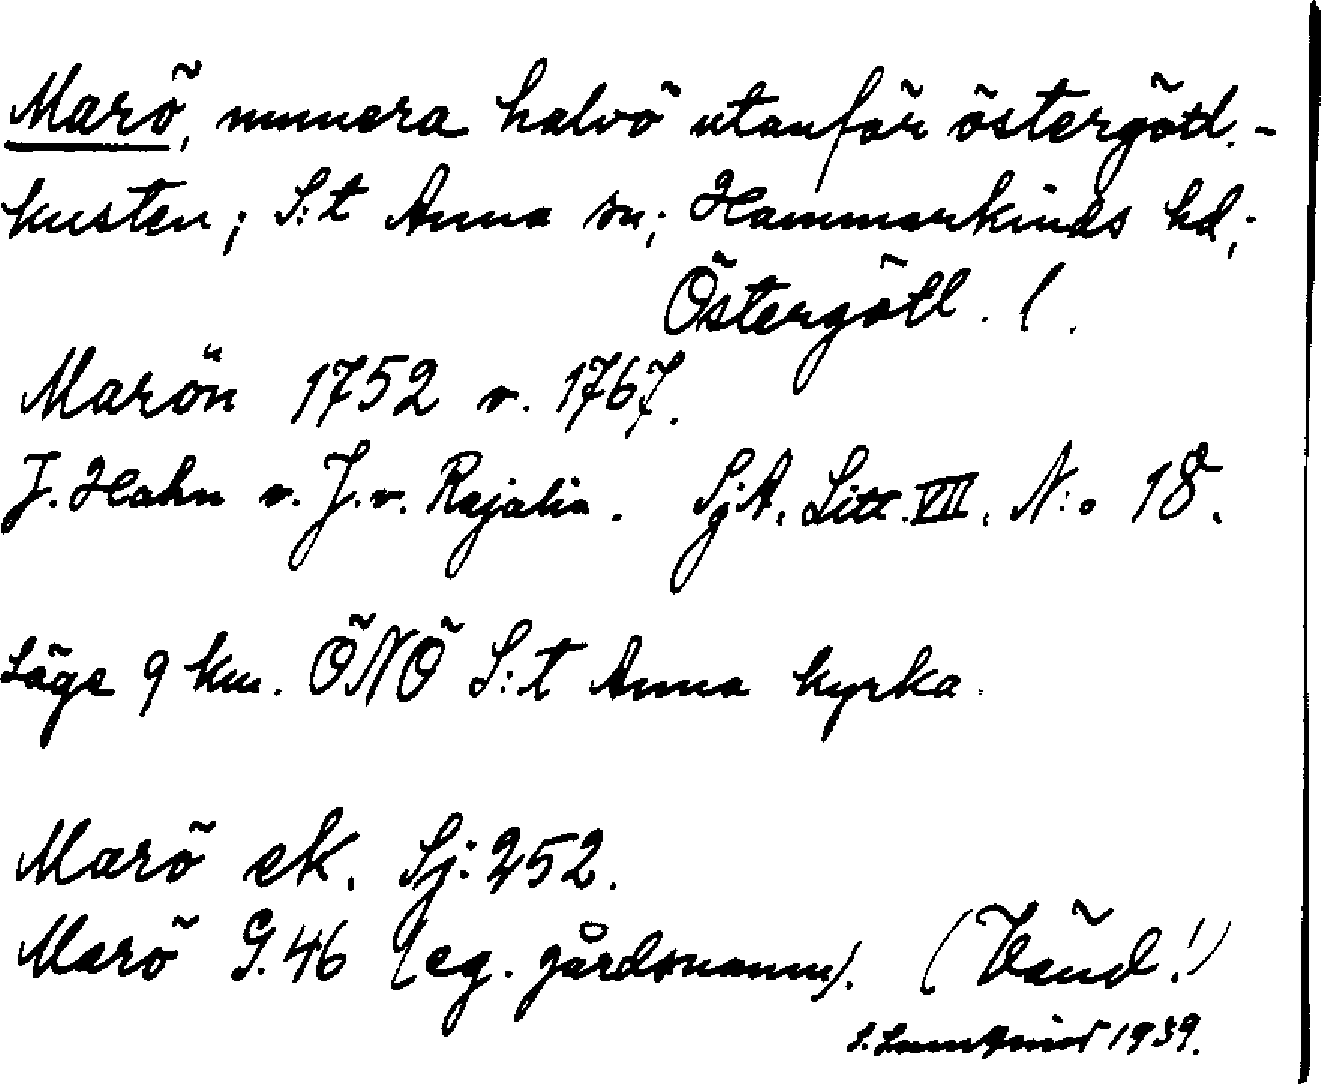 Marö, numera halvö utanför östergötl.-
kusten; S:t Anna sn; Hammarkinds hd;
Östergötl. l.
Marön 1752 o. 1767.
J. Hahn o. J. v. Rajalin. SjA. Litt. VII. N:o 18.
Läge 9 km. ÖNÖ S:t Anna kyrka.
Marö ek. Sj: 252.
Marö G. 46 (eg. gårdsnamn). (Vänd!)
1939.